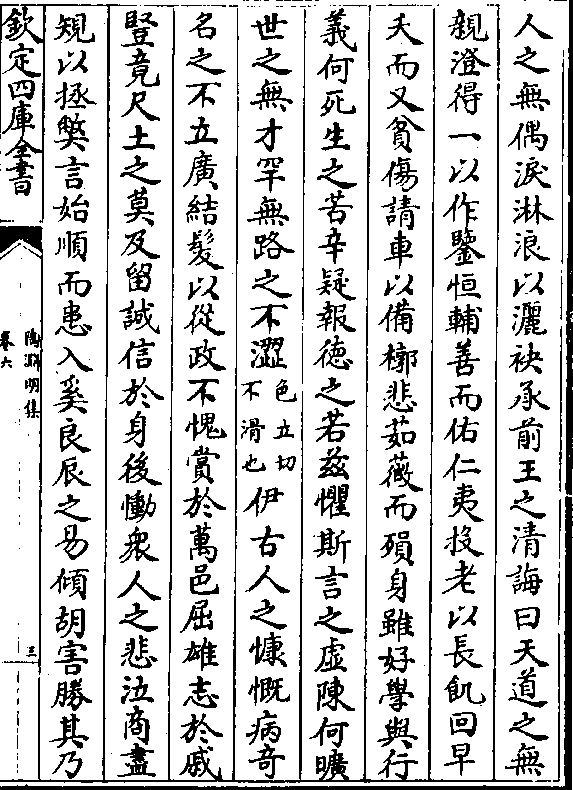 人之無偶淚淋浪以灑袂承前王之清誨曰天道之無
親澄得一以作鑒恒輔善而佑仁夷投老以長飢回早
夭而又貧傷請車以備槨悲茹薇而殞身雖好學與行
義何死生之苦辛疑報德之若兹懼斯言之虛陳何曠
世之無才罕無路之不澀色立切不滑也伊古人之慷慨病竒
名之不立廣結髮以從政不愧賞於萬邑屈雄志於戚
豎竟尺土之莫及留誠信於身後慟衆人之悲泣商盡
規以拯弊言始順而患入奚良辰之易傾胡害勝其乃
欽定四庫全書
陶淵明集
卷六
三